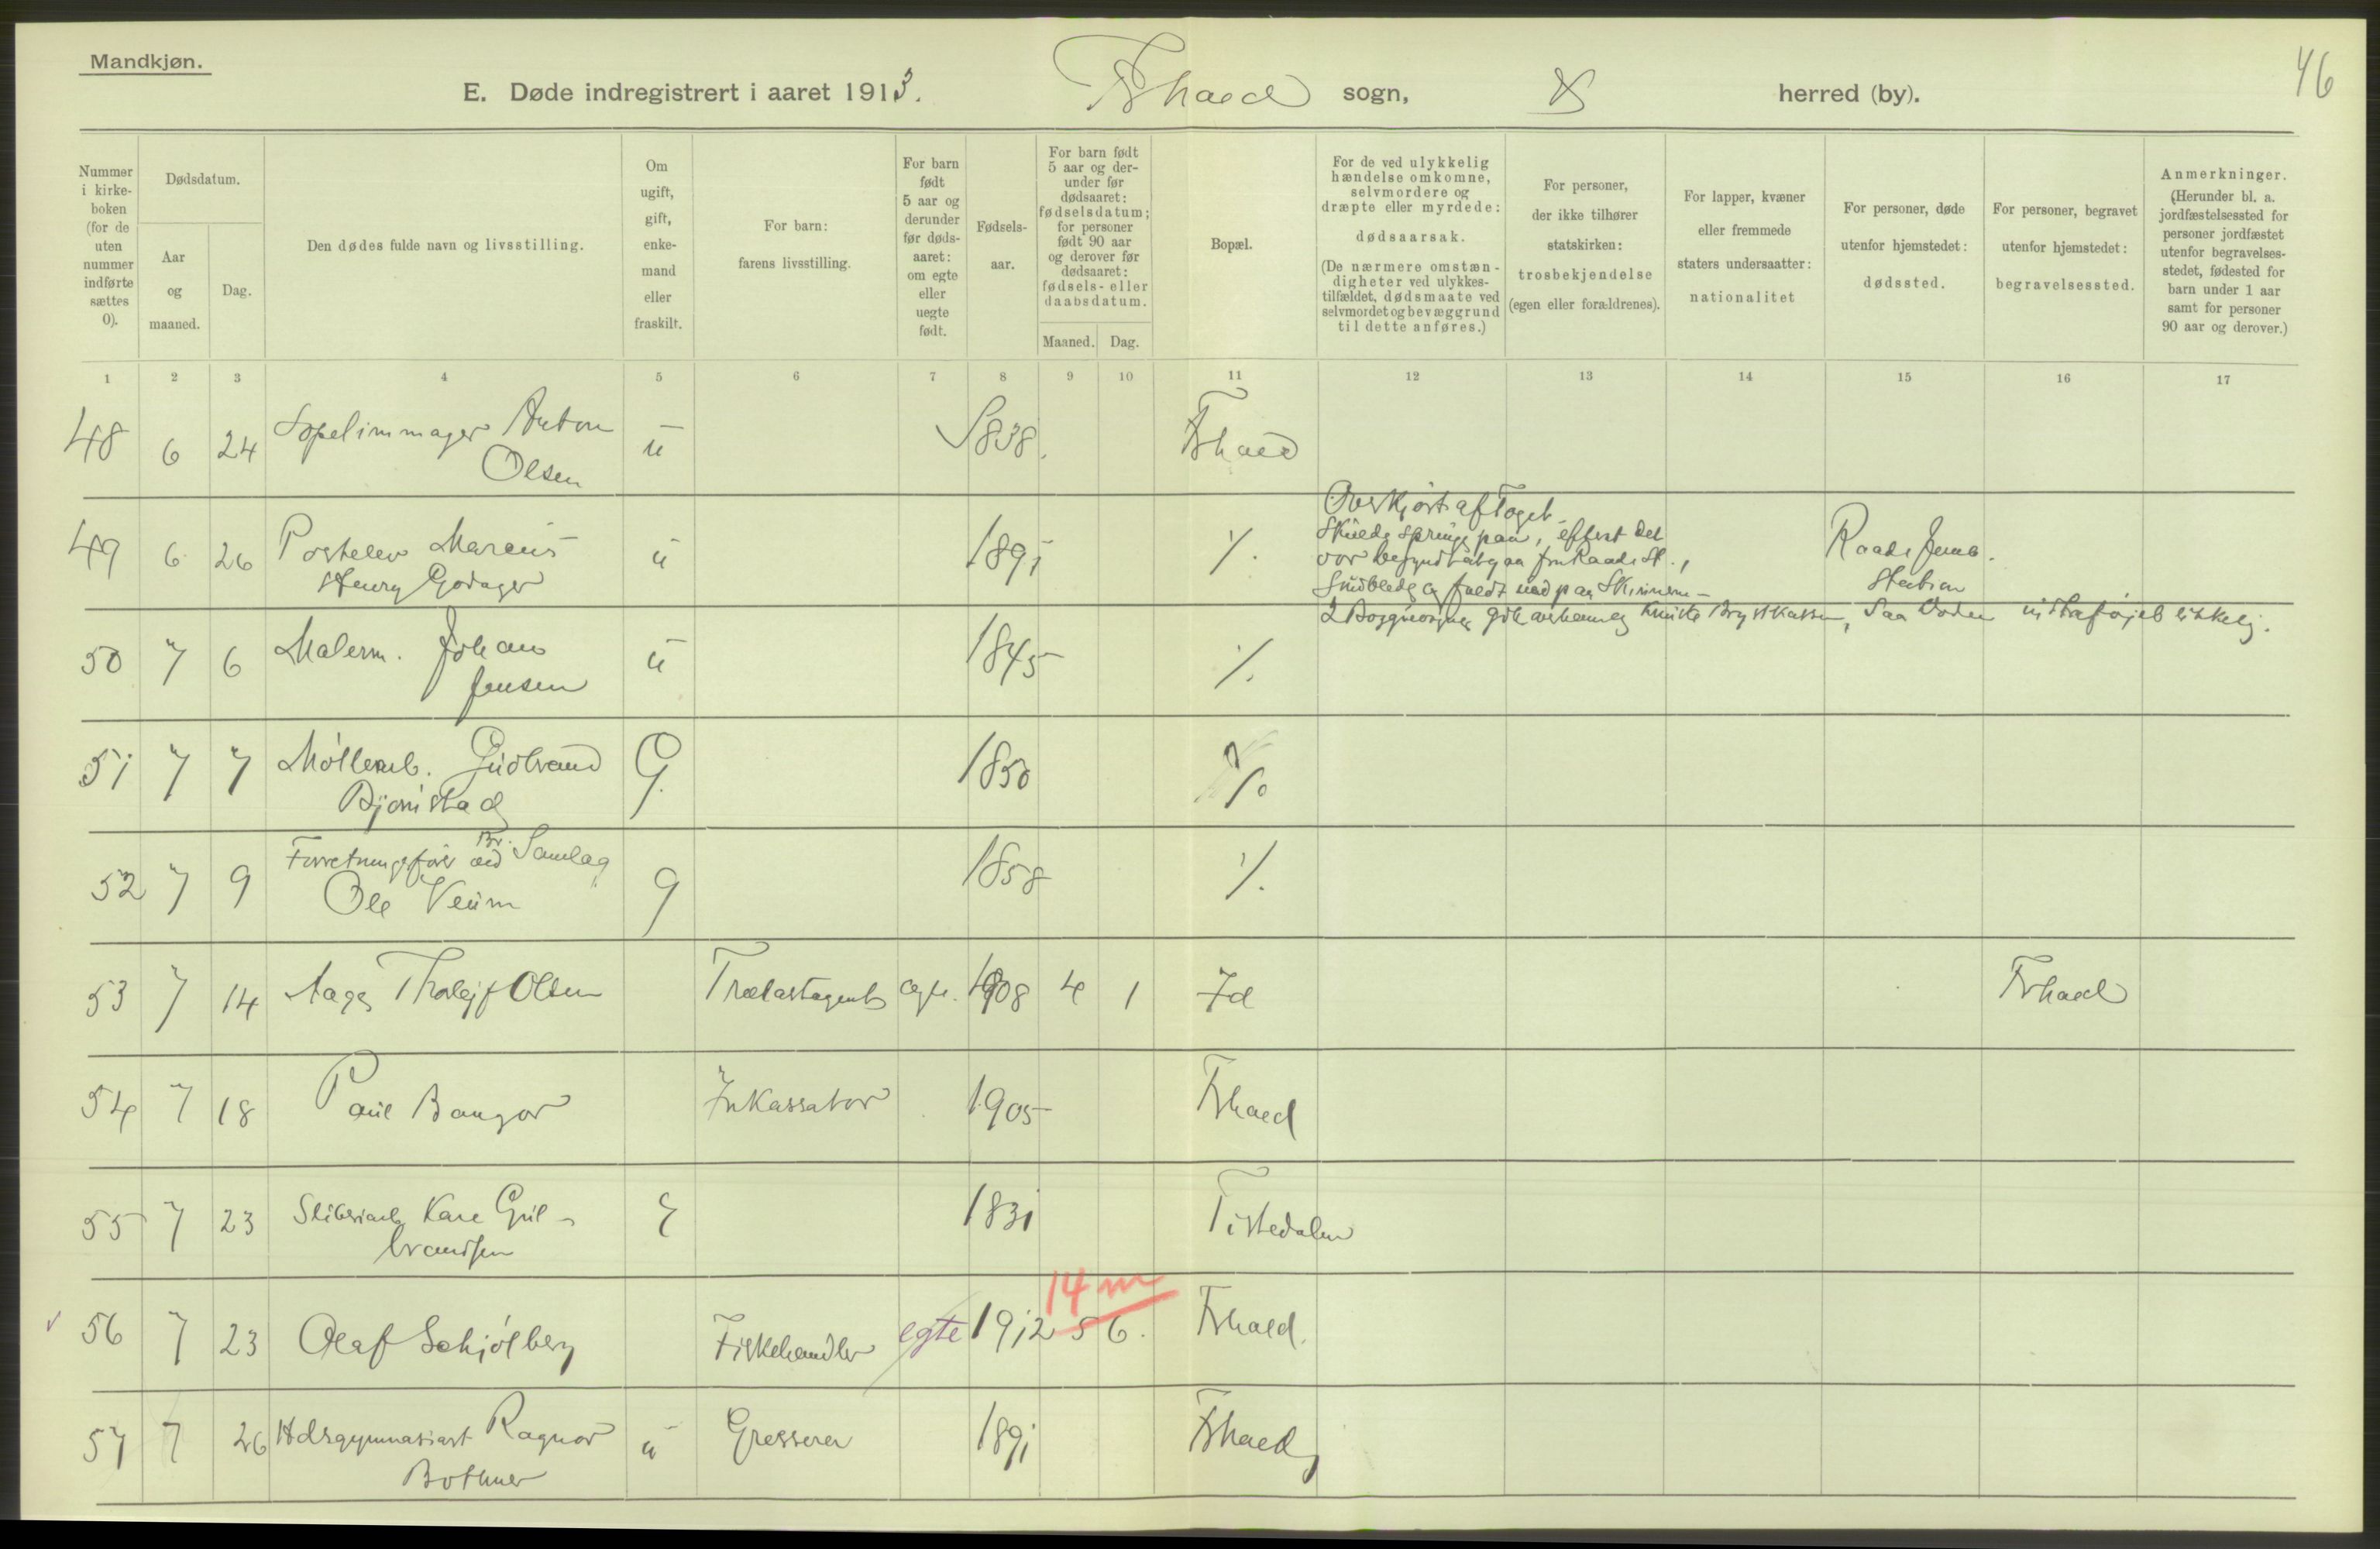 Mandkjøn.
46
E. Døde indregistrert i aaret 1913. Fr.hald sogn, herred (by).
Nummer i kirke-boken (for de uten nummer indførte sættes 0).
Dødsdatum.
Aar og maaned.
Dag.
Den dødes fulde navn og livsstilling.
Om ugift, gift, enke-mand eller fraskilt.
For barn: farens livsstilling.
For barn født 5 aar og derunder før døds-aaret: om egte eller uegte født.
Fødsels-aar.
For barn født 5 aar og der-under før dødsaaret: fødselsdatum; for personer født 90 aar og derover før dødsaaret: fødsels- eller daabsdatum.
Maaned.
Dag.
Bopæl.
For de ved ulykkelig hændelse omkomne, selvmordere og dræpte eller myrdede: dødsaarsak. (De nærmere omstæn-digheter ved ulykkes-tilfældet, dødsmaate ved selvmordet og bevæggrund til dette anføres.)
For personer, der ikke tilhører statskirken: trosbekjendelse (egen eller forældrenes).
For lapper, kvæner eller fremmede staters undersaatter: nationalitet
For personer, døde utenfor hjemstedet: dødssted.
For personer, begravet utenfor hjemstedet: begravelsessted.
Anmerkninger. (Herunder bl. a. jordfæstelsessted for personer jordfæstet utenfor begravelses-stedet, fødested for barn under 1 aar samt for personer 90 aar og derover.)
1 2 3 4 5 6 7 8 9 10 11 12 13 14 15 16 17
48 6 24 Anton u 1838. Fr.hald
Olsen
49 6 26 Postelev Marcus u 1891 ./.
Henry Godager
Overkjørt af Toget
Skulde springe paa, efterat det
var begyndt at gaa fra Raade St.,
og faldt ned paa Skinnerne
Raade Jernb.
Station
50 7 6 Malerm. Johan u 1845 ./.
Jensen
51 7 7 Møllearb. Gudbrand G. 1850 ./.
Bjørnstad
52 7 9 Forretningsfører ved Br. Samlag g 1858 ./.
Ole Veum
53 7 14 Aage Thorleif Olsen Trælastagent egte. 1908 4 1 Id Fr.hald
54 7 18 Paul Bangor Inkassator 1905 Fr.hald
55 7 23 Sliberiarb. Kare Gul- E 1831 Tistedalen
brandsen
14 m
56 7 23 Olaf Schjølberg Fiskehandler egte 1912 5 6. Fr.hald.
57 7 26 Hdsgymnasiast Ragnar u Grosserer 1891 Fr.hald
Bothner